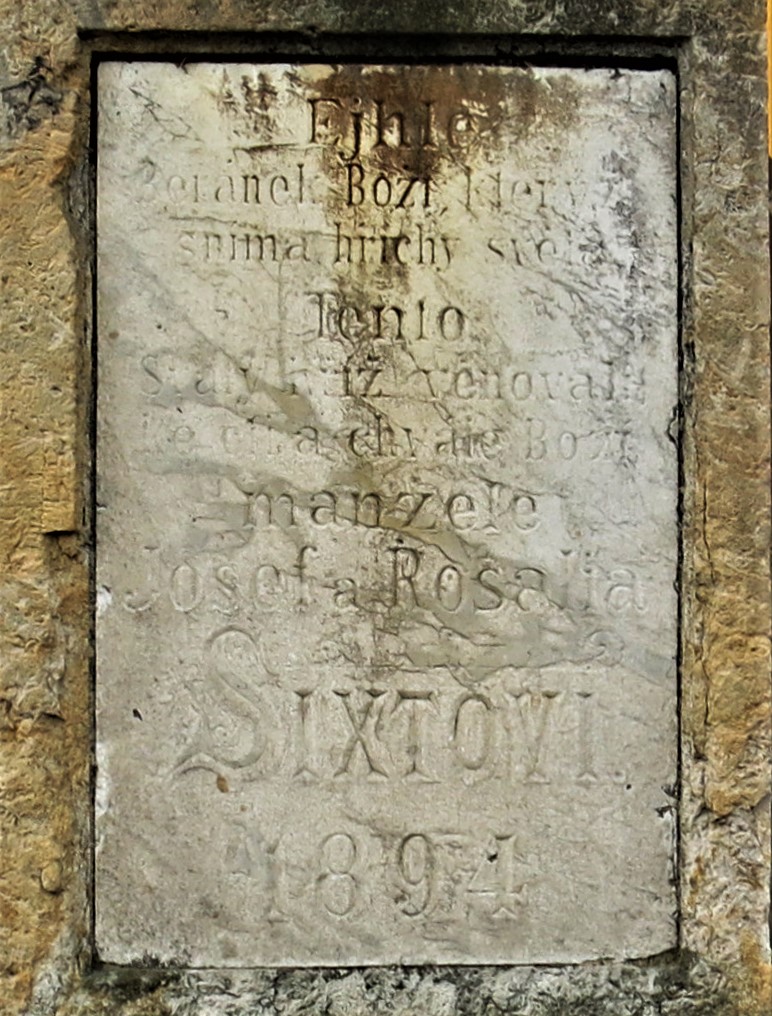 Ejhle
Beránek Boží, který ž
snímá hříchy světa.
Tento
Svatý kříž věnovali
ke cti a chvále Boží
manželé
Josef a Rosalia
SIXTOVI.
1894